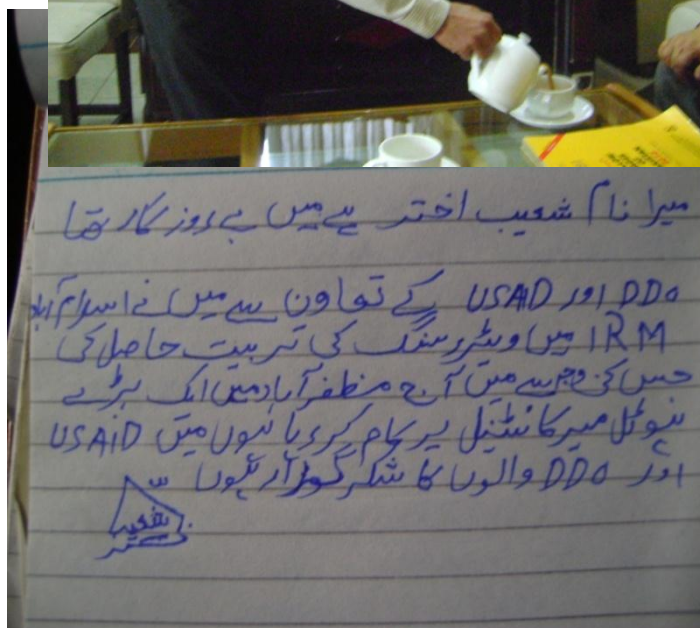 میرا نام شعیب اختر ہے میں بے روزگار تھا
DDO اور USAID کے تعاون سے میں نے اسلام آباد
IRM میں ویٹرسنگ کی تربیت حاصل کی
جس کی وجہ سے میں آج مظفرآباد میں ایک بڑے
ہوٹل میر کانٹینٹل پر کام کر رہا ہوں میں USAID
اور DDO والوں کا شکر گزار ہوں
شعیب